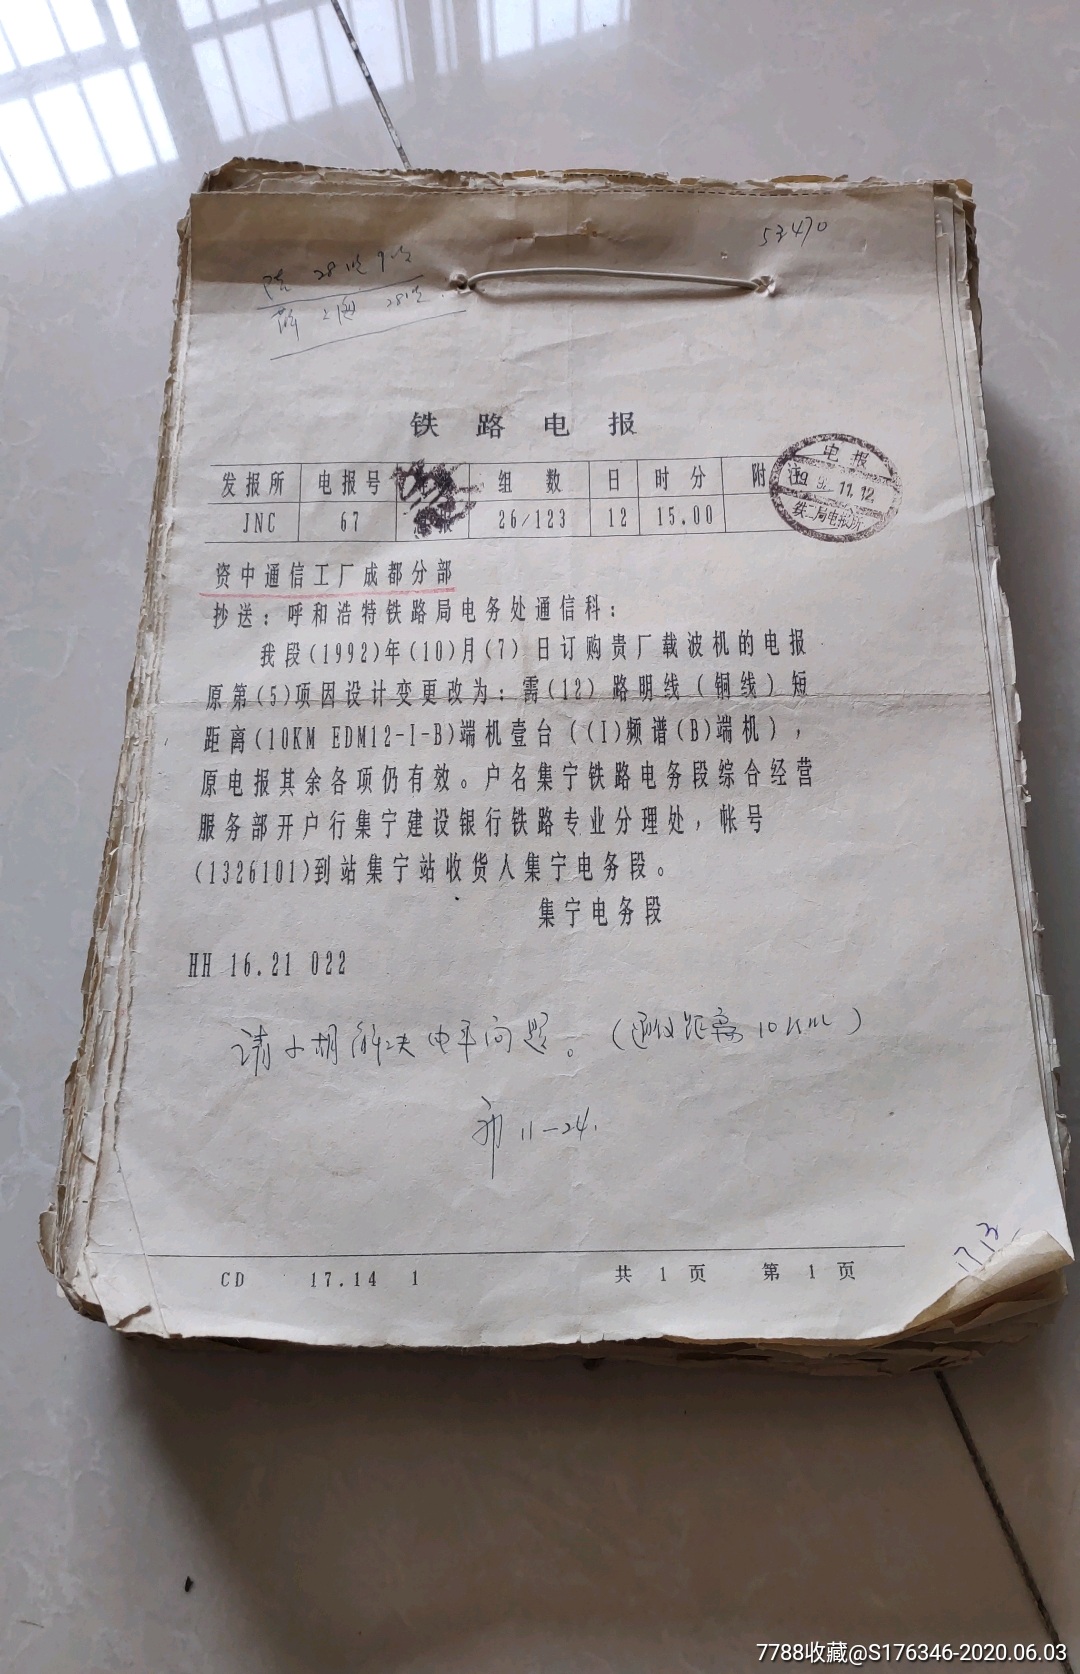 53470
28
上海 28
铁路电报
发报所 电报号 组数 日 时分 附注
JNC 67 26/123 12 15.00
电报
92.11.12
铁二局电报所
资中通信工厂成都分部
抄送：呼和浩特铁路局电务处通信科：
我段(1992)年(10)月(7)日订购贵厂载波机的电报
原第(5)项因设计变更改为：需(12)路明线(铜线)短
距离(10KM EDM12-I-B)端机壹台((I)频谱(B)端机)，
原电报其余各项仍有效。户名集宁铁路电务段综合经营
服务部开户行集宁建设银行铁路专业分理处，帐号
(1326101)到站集宁站收货人集宁电务段。
集宁电务段
HH 16.21 022
请小胡解决电平问题。(通仪距离10KM)
11-24.
CD 17.14 1 共1页 第1页
7788收藏@S176346-2020.06.03